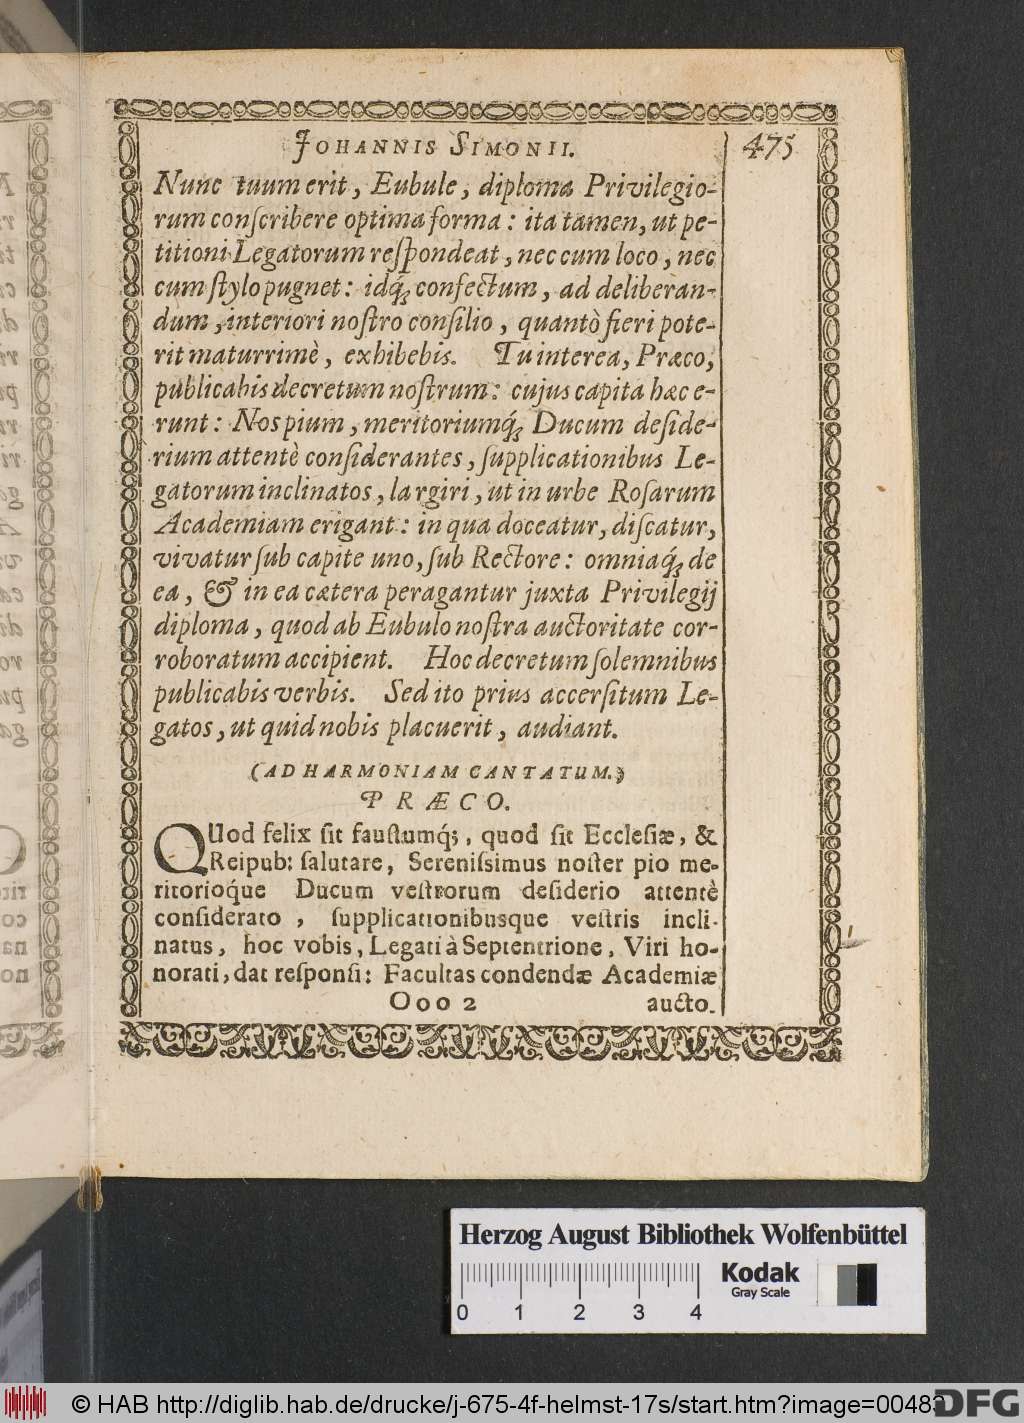 JOHANNIS SIMONII. 475
Nunc tuum erit, Eubule, diploma Privilegio-
rum conſcribere optima forma: ita tamen, ut pe-
titioni Legatorum reſpondeat, nec cum loco, nec
cum ſtylo pugnet: idq́ꝫ confectum, ad deliberan-
dum, interiori noſtro conſilio, quantò fieri pote-
rit maturrimè, exhibebis. Tu interea, Præco,
publicabis decretum noſtrum: cujus capita hæc e-
runt: Nos pium, meritoriumq́ꝫ Ducum deſide-
rium attentè conſiderantes, ſupplicationibus Le-
gatorum inclinatos, largiri, ut in urbe Roſarum
Academiam erigant: in qua doceatur, diſcatur,
vivatur ſub capite uno, ſub Rectore: omniaq́ꝫ de
ea, & in ea cætera peragantur juxta Privilegij
diploma, quod ab Eubulo noſtra auctoritate cor-
roboratum accipient. Hoc decretum ſolemnibus
publicabis verbis. Sed ito prius accerſitum Le-
gatos, ut quid nobis placuerit, audiant.
(AD HARMONIAM CANTATUM.)
PRÆCO.
QUod felix ſit fauſtumq́ꝫ, quod ſit Eccleſiæ, &
Reipub: ſalutare, Sereniſsimus noſter pio me-
ritorioq́ue Ducum veſtrorum deſiderio attentè
conſiderato, ſupplicationibusque veſtris incli-
natus, hoc vobis, Legati à Septentrione, Viri ho-
norati, dat reſponſi: Facultas condendæ Academiæ
Ooo 2 aucto-
Herzog August Bibliothek Wolfenbüttel
Kodak
Gray Scale
0 1 2 3 4
© HAB http://diglib.hab.de/drucke/j-675-4f-helmst-17s/start.htm?image=00483
DFG